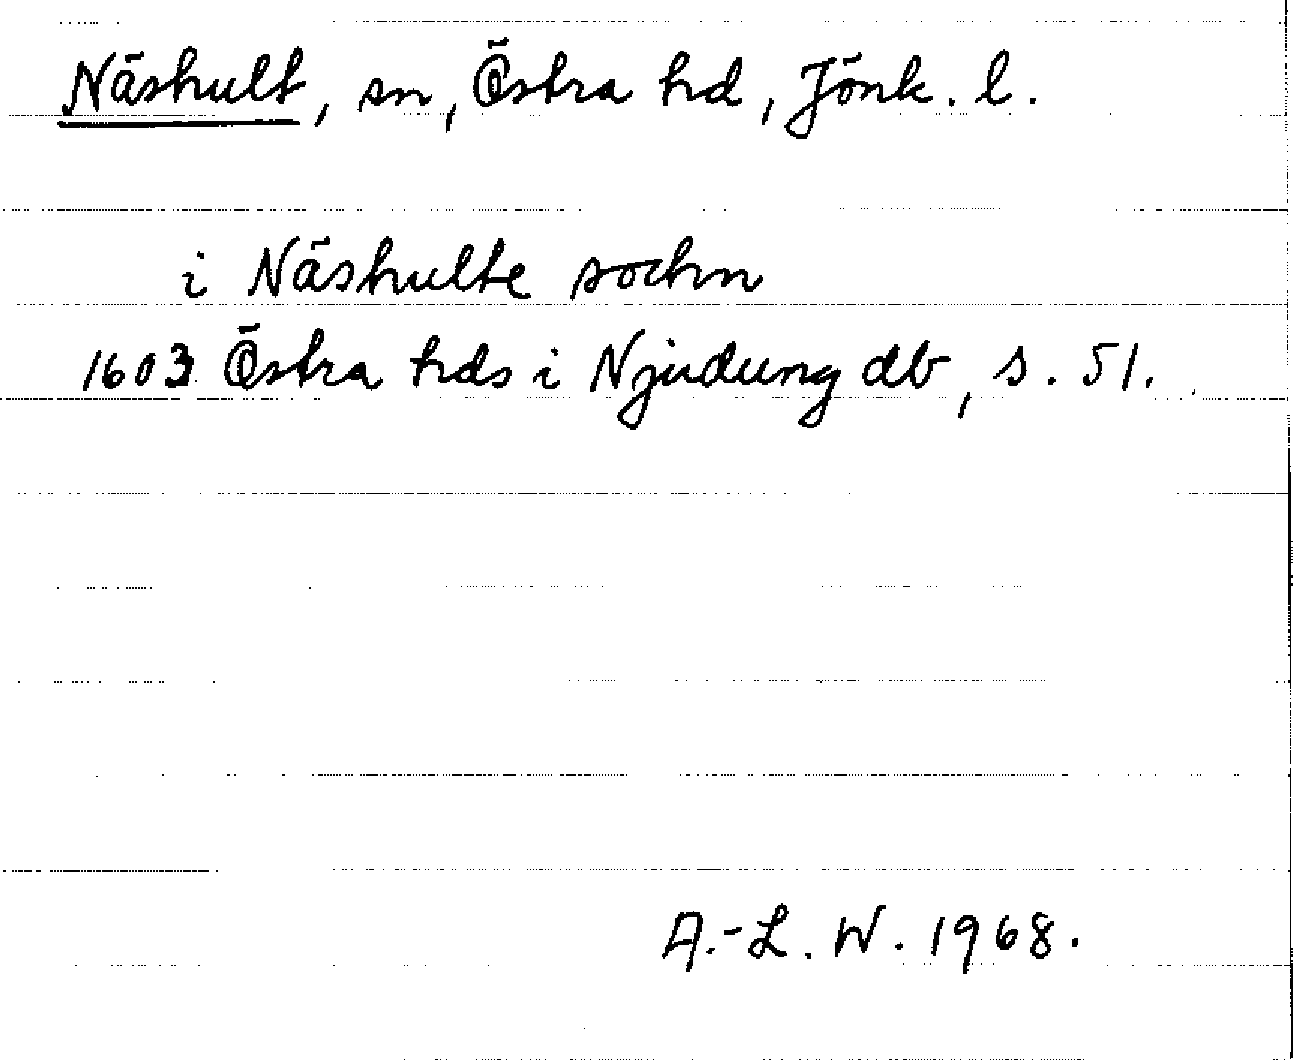 Näshult, sn, Östra hd, Jönk. l.
i Näshulte sochn
1603 Östra hds i Njudung db, s. 51.
A.-L. W. 1968.